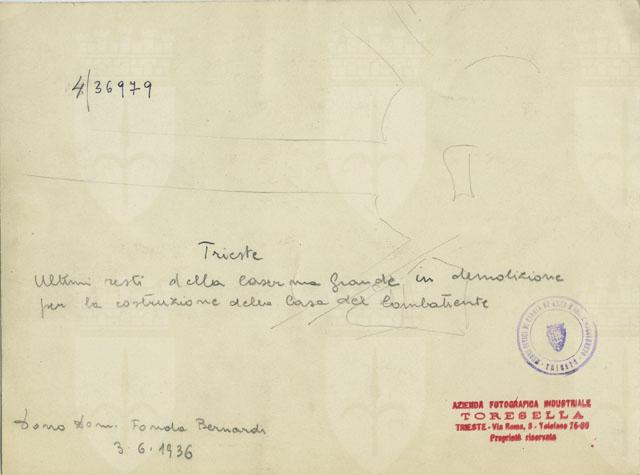 4/36979
Trieste
Ultimi resti della Caserma Grande in demolizione
per la costruzione della Casa del Combattente
Dono Dom. Fonda Bernardi
3.6.1936
TRIESTE
AZIENDA FOTOGRAFICA INDUSTRIALE
TORESELLA
TRIESTE - Via Roma, 3 - Telefono 76-90
Proprietà riservata